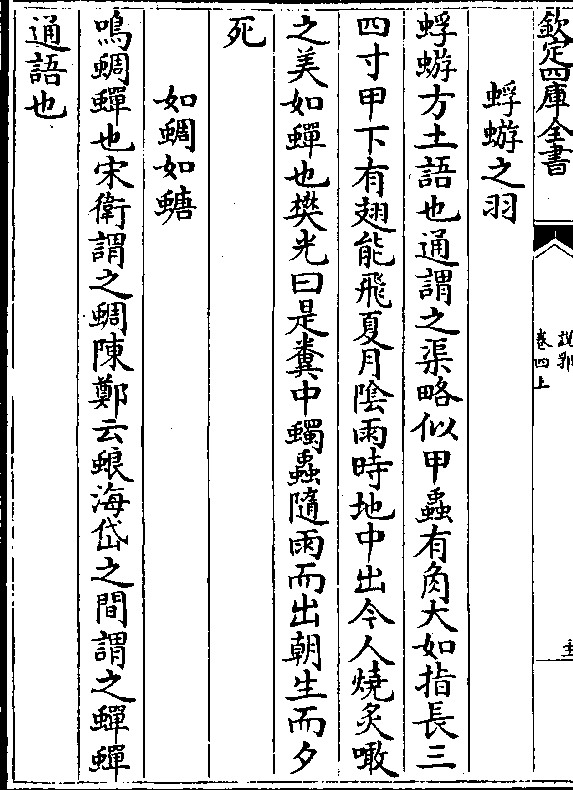 欽定四庫全書
卷四上
蜉蝣之羽
蜉蝣方土語也通謂之渠略似甲蟲有角大如指長三
四寸甲下有翅能飛夏月陰雨時地中出今人燒炙噉
之美如蟬也樊光曰是糞中蠋蟲隨雨而出朝生而夕
死
如蜩如螗
鳴蜩蟬也宋衛謂之蜩陳鄭云蜋海岱之間謂之蟬蟬
通語也